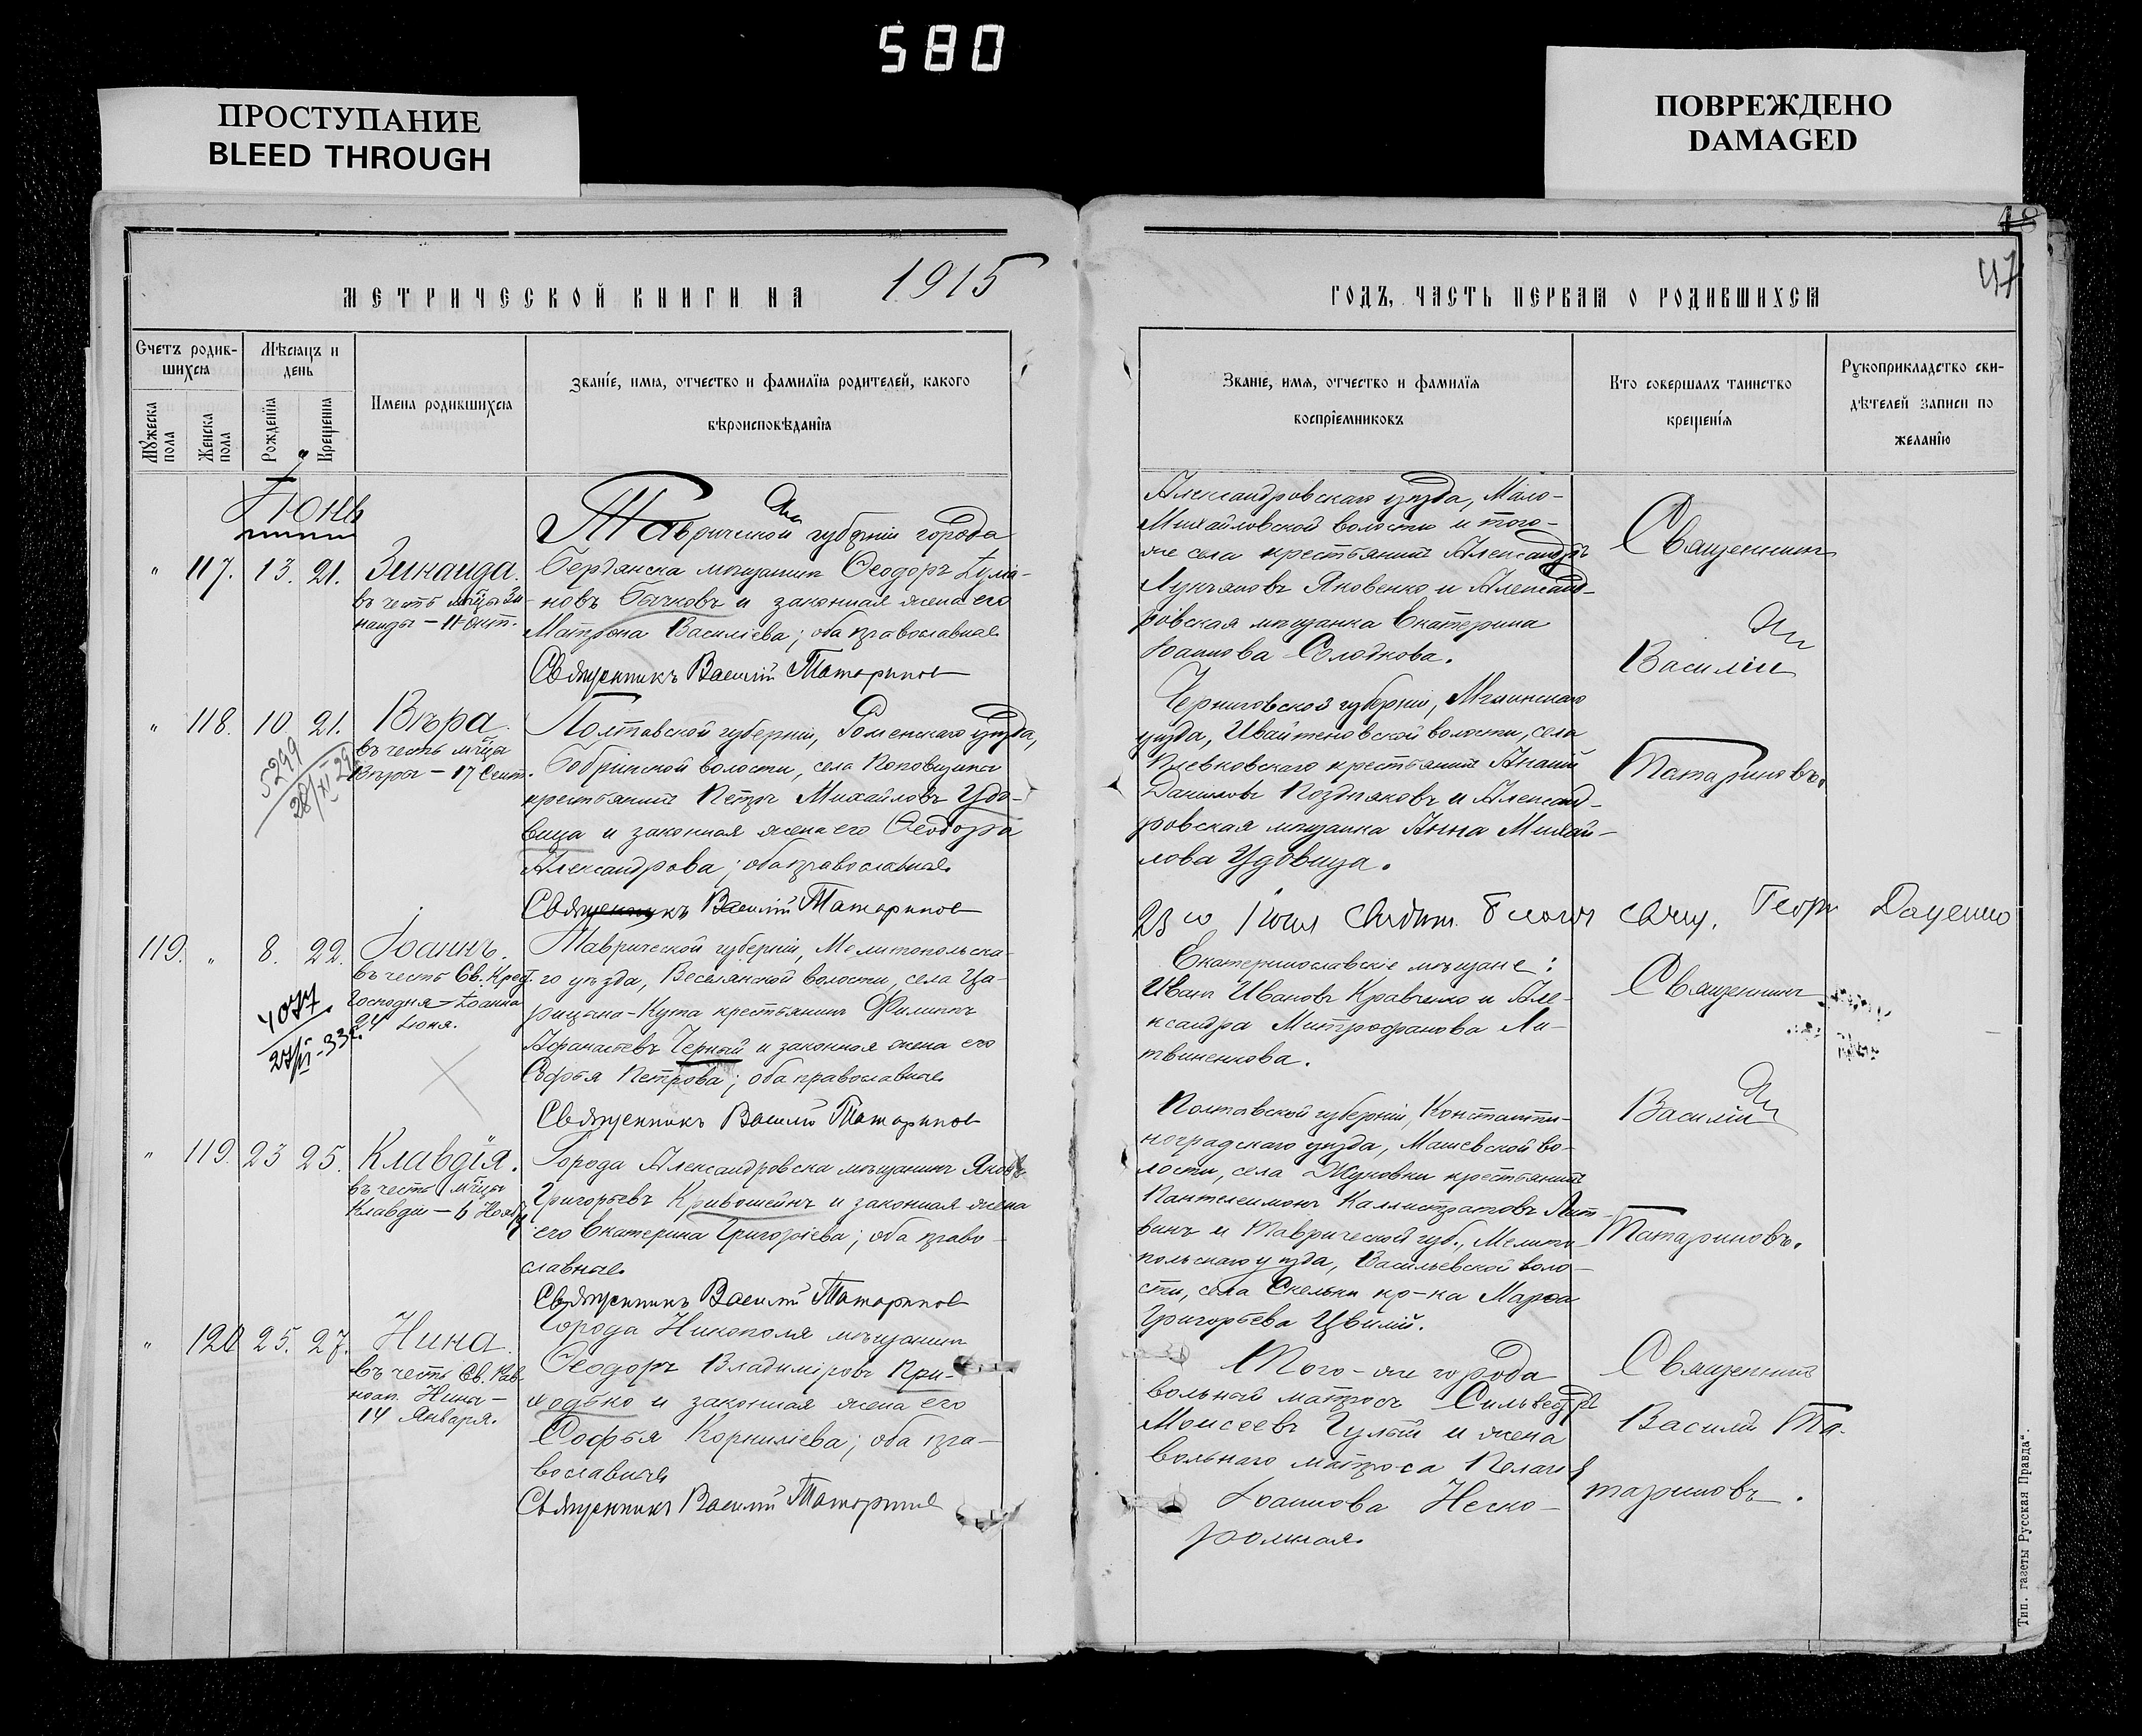 580
ПРОСТУПАНИЕ
BLEED THROUGH
ПОВРЕЖДЕНО
DAMAGED
МЕТРИЧЕСКОЙ КНИГИ НА 1915
Счетъ родив-
шихся
Мѣсяцъ и
день
Мужеска
пола
Женска
пола
Рожденія
Крещенія
Имена родившихся
Званіе, имя, отчество и фамилія родителей, какого
вѣроисповѣданія
Іюнь
Таврической губерніи города
" 117. 13. 21. Зинаида. Бердянска мѣщанинъ Ѳеодоръ
въ честь мцы Зи- новъ Бычковъ и законная жена его
наиды — 11 Окт. Матрона Василіева; оба православные
Священникъ Василій Татариновъ
" 118. 10 21. Вѣра. Полтавской губерніи, Роменскаго уѣзда,
въ честь мцы
Вѣры — 17 Сент. волости, села Поповщины
5299
28/XI 29
крестьянинъ Петръ Михайловъ Удо-
вица и законная жена его Ѳеодора
Александрова; оба православные
Священникъ Василій Татариновъ
119. " 8. 22. Іоаннъ. Таврической губерніи, Мелитопольска-
въ честь Св. Крест. го уѣзда, Веселянской волости, села Ца-
Господня Іоанна рицына-Кута крестьянинъ Филиппъ
24 Іюня.
4077
Афанасьевъ Черный и законная жена его
Софья Петрова; оба православные
Священникъ Василій Татариновъ
" 119. 23 25. Клавдія. Города Александровска мѣщанинъ Яковъ
въ честь мцы
Клавдіи — 6 Ноябр. Григорьевъ Кривошеинъ и законная жена
его Екатерина Григоріева; оба право-
славные
Священникъ Василій Татариновъ
Города Никополя мѣщанинъ
" 120 25. 27. Нина. Ѳеодоръ Владиміровъ При-
въ честь Св. Рав-
ноап. Нины — ходько и законная жена его
14 Января.
Софья Корниліева; оба пра-
вославные
Священникъ Василій Татариновъ
48
47
ГОДЪ, ЧАСТЬ ПЕРВАЯ О РОДИВШИХСЯ
Званіе, имя, отчество и фамилія
воспріемниковъ
Кто совершалъ таинство
крещенія
Рукоприкладство сви-
дѣтелей записи по
желанію
Александровскаго уѣзда, Мало-
Михайловской волости и того-
же села крестьянинъ Александръ
Лукьяновъ Яковенко и Александ-
ровская мѣщанка Екатерина
Іоаннова Солодкова.
Священникъ
Василій
Татариновъ.
Черниговской губерніи, Мглинскаго
уѣзда, Ивайтеновской волости, села
крестьянинъ Ананій
Даниловъ Поздняковъ и Александ-
ровская мѣщанка Анна Михай-
лова Удовица.
23 Даценко
Екатеринославскіе мѣщане:
Иванъ Ивановъ Кравченко и Але-
ксандра Митрофанова Ли-
твиненкова.
Священникъ
Василій
Татариновъ.
Полтавской губерніи, Константи-
ноградскаго уѣзда, Машевской во-
лости, села Жуковки крестьянинъ
Пантелеимонъ Каллистратовъ Лит-
винъ и Таврической губ., Мелито-
польскаго уѣзда, Васильевской воло-
сти, села Скельки кр-ка Марѳа
Григорьева Цвилій.
Того-же города
вольный матросъ Сильвестръ
Моисеевъ Гулый и жена
вольнаго матроса Пелагія
Іоаннова Неско-
ромная.
Священникъ
Василій Та-
тариновъ.
Тип. газеты Русская Правда".